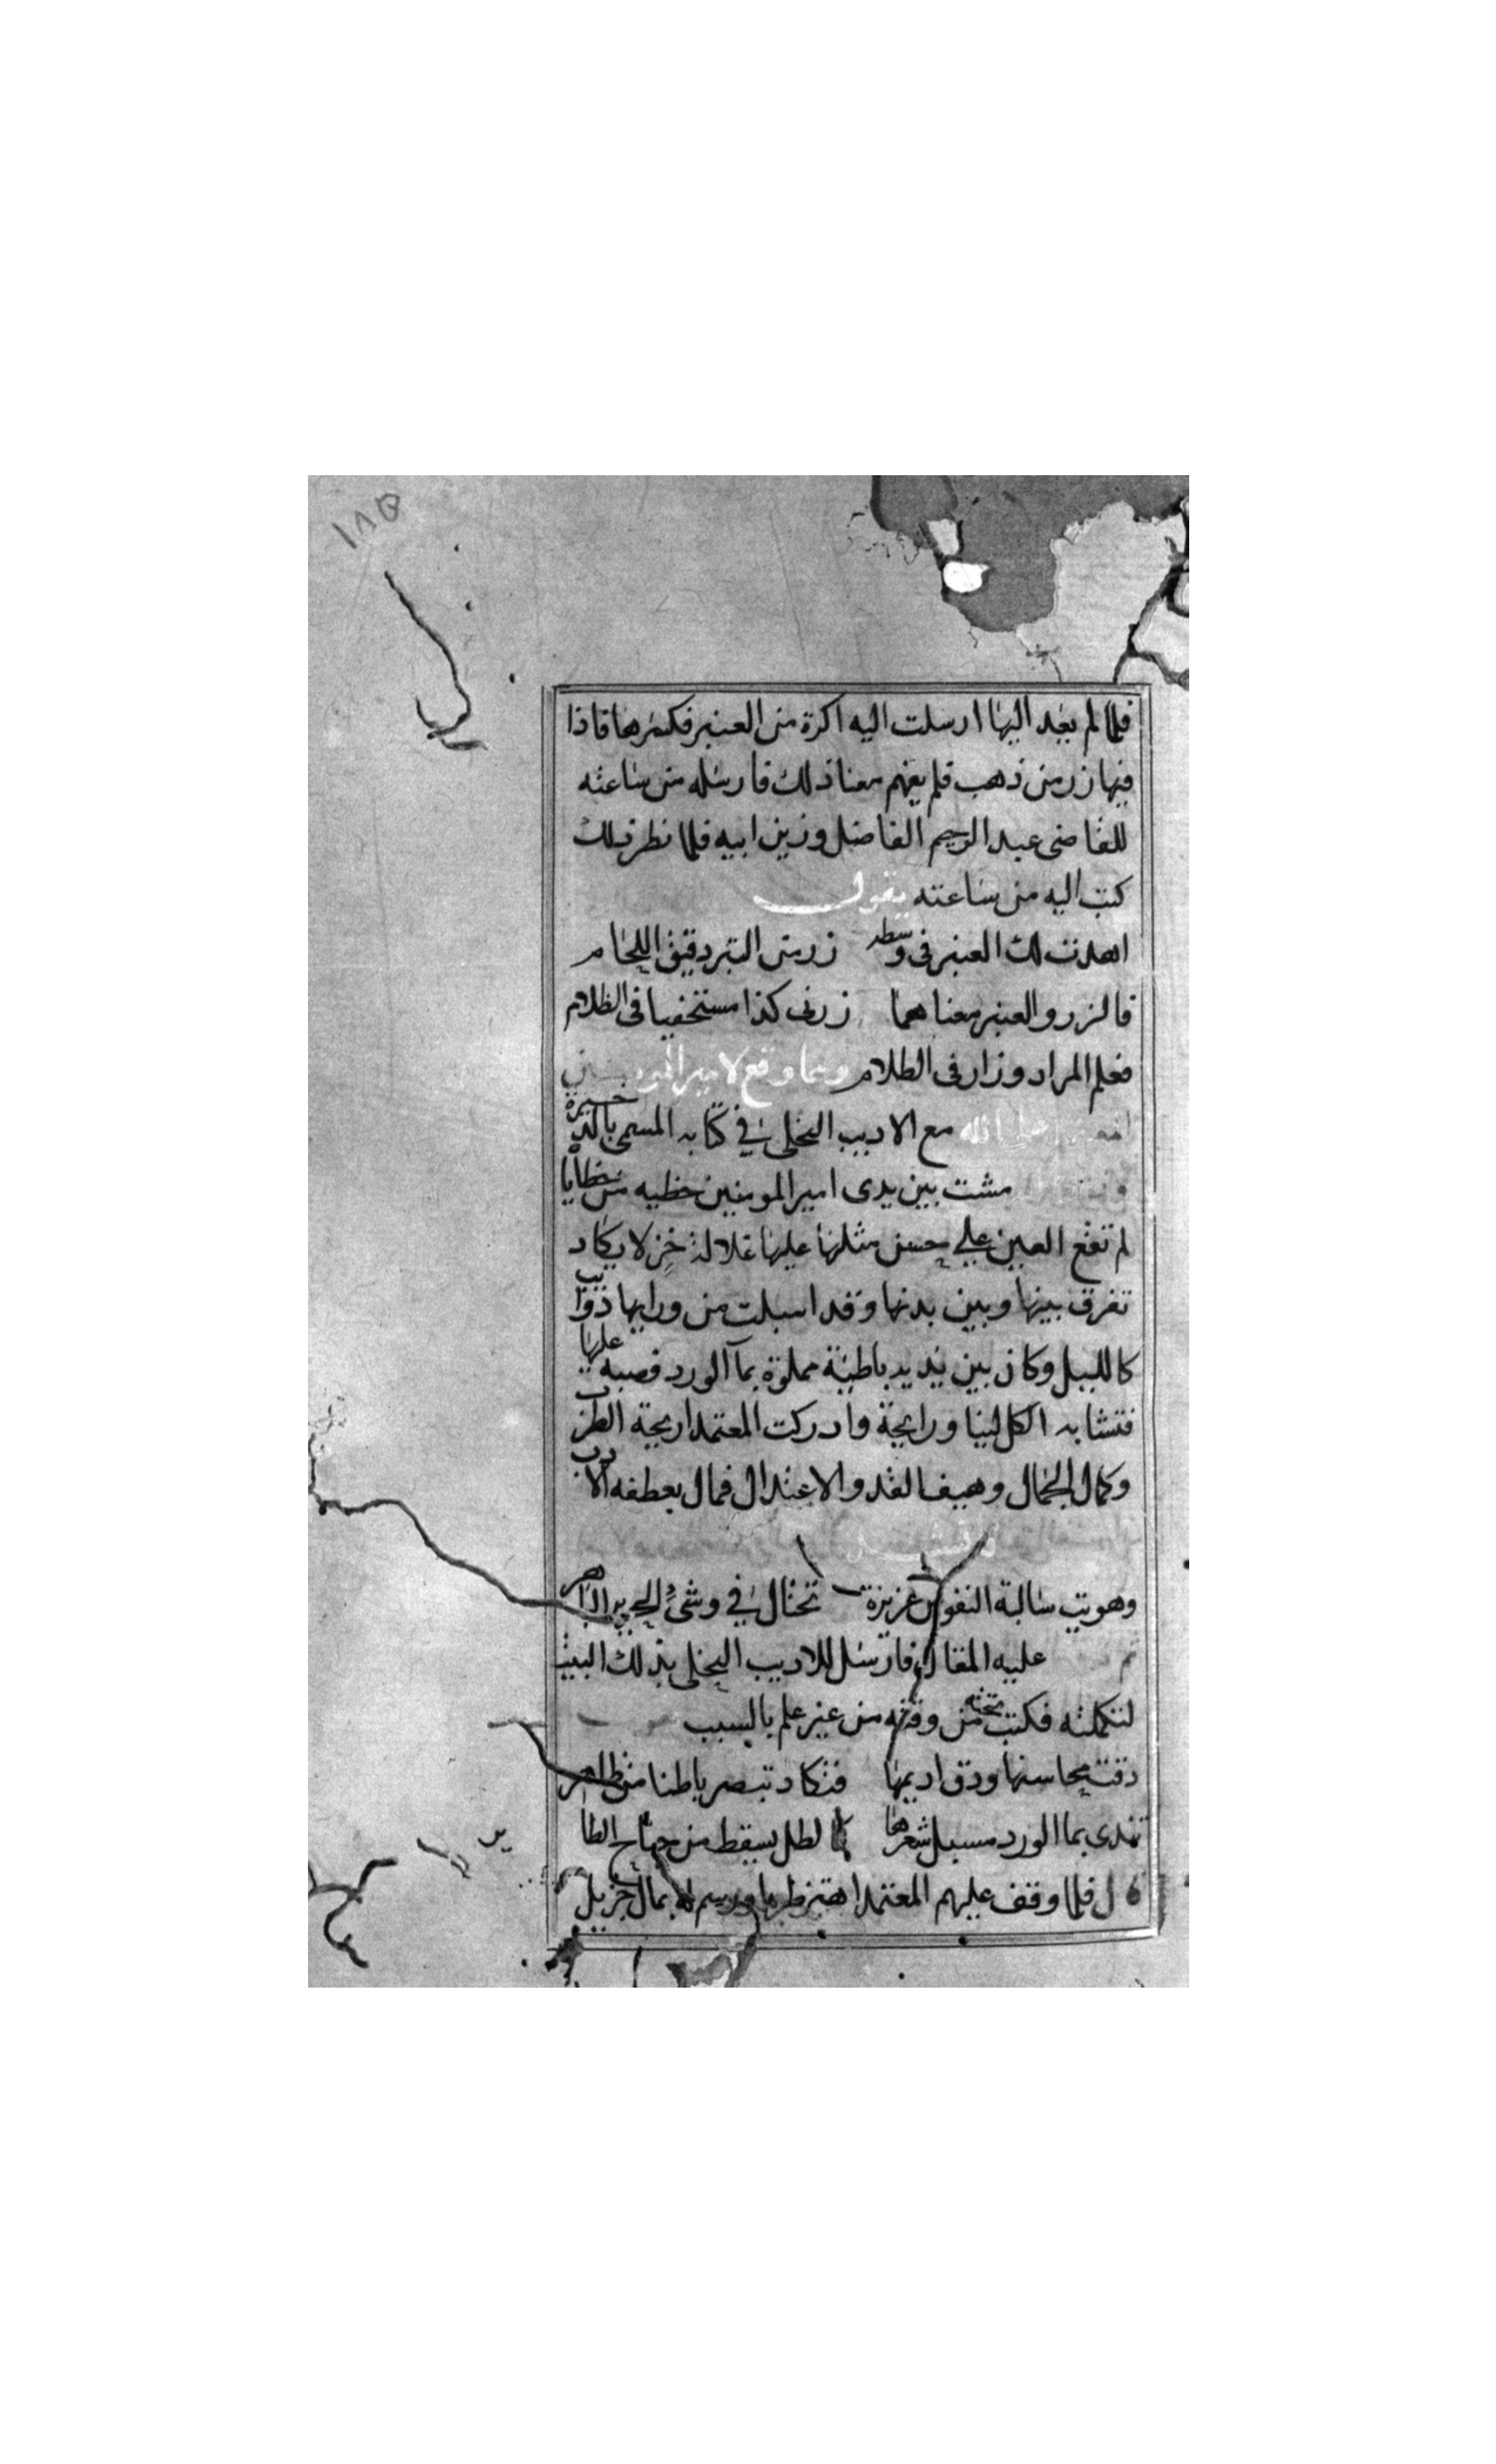 ١٨٥
فلما لم يعد اليها ارسلت اليه اكرة من العنبر فكسرها فاذا
فيها زر من ذهب فلم يفهم معنا ذلك فارسله من ساعته
للقاضى عبد الرحيم الفاضل وزير ابيه فلما نظر ذلك
كتب اليه من ساعته يقول
اهدت لك العنبر فى وسطه زر من التبر دقيق اللحام
فالزر والعنبر معناهما زرنى كذا مستخفيا فى الظلام
فعلم المراد وزار فى الظلام ومما وقع لامير
على الله مع الاديب النحلى في كتابه المسمى بالذخيرة
مشت بين يدى امير المومنين حظيه من حظايا
لم تقع العين علي حسن مثلها عليها غلالة خز لا يكاد
تفرق بينها وبين بدنها وقد اسبلت من ورايها ذوايب
كالليل وكان بين يديه باطية مملوة بمآ الورد فصبه عليها
فتشابه الكل لينا ورايحة وادركت المعتمد اريحة الطرب
وكمال الجمال وهيف القد والاعتدال فمال بعطفه الادب
وهويت سالبة النفوس عزيزة تختال في وشى الحرير الباهر
عليه المقال فارسل للاديب النحلى بذلك البيت
لتكملته فكتب تحته من وقته من غير علم بالسبب
دقت محاسنها ورق اديمها فتكاد تبصر باطنا من ظاهر
تندى بما الورد مسبل شعرها كالطل يسقط من جناح الطا
ير
قال فلما وقف عليهم المعتمد اهتز طربا ورسم له بمال جزيل